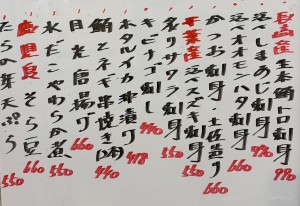 長崎産 生本鮪トロ刺身 990
活〆しまあじ刺身 990
活〆オオモンハタ刺身 660
かつお刺身 土佐造り 660
千葉産 活〆スズキ刺身 550
名ワサラ刺身
キビナゴ刺し 440
本タルイカ沖漬け 478
鮪とネギ串焼き(2本) 440
目光唐揚げ 660
水だこやわらか煮 550
鹿児島 そら豆 660
たらの芽天ぷら 550